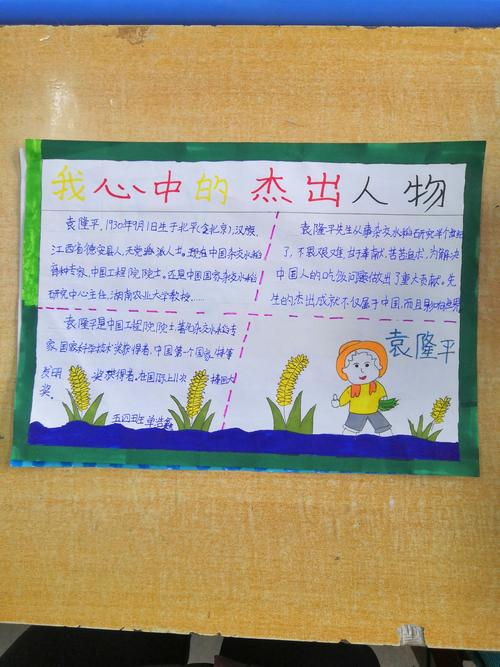 我心中的杰出人物
袁隆平,1930年9月1日生于北平(今北京),汉族,
江西省德安县人,无党派人士。现在中国杂交水稻
育种专家,中国工程院院士。还是中国国家杂交水稻
研究中心主任,湖南农业大学教授……
袁隆平先生从事杂交水稻研究半个世纪
了,不畏艰难,甘于奉献,苦苦追求,为解决
中国人的吃饭问题做出了重大贡献。先
生的杰出成就不仅属于中国,而且影响世界
袁隆平是中国工程院院士,著名杂交水稻专
家,国家科学技术奖获得者,中国第一个国家特等
发明奖获得者。在国际上11次
五四班
袁隆平